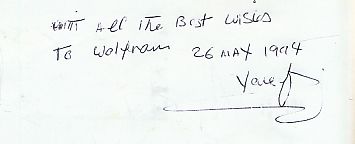 With All The Best Wishes
To Wolfram 26 MAY 1994